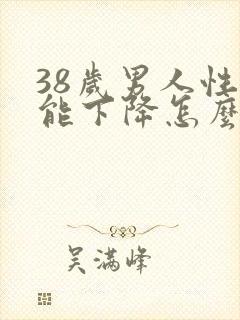 38歲男人性
能下降怎麼
吴满峰